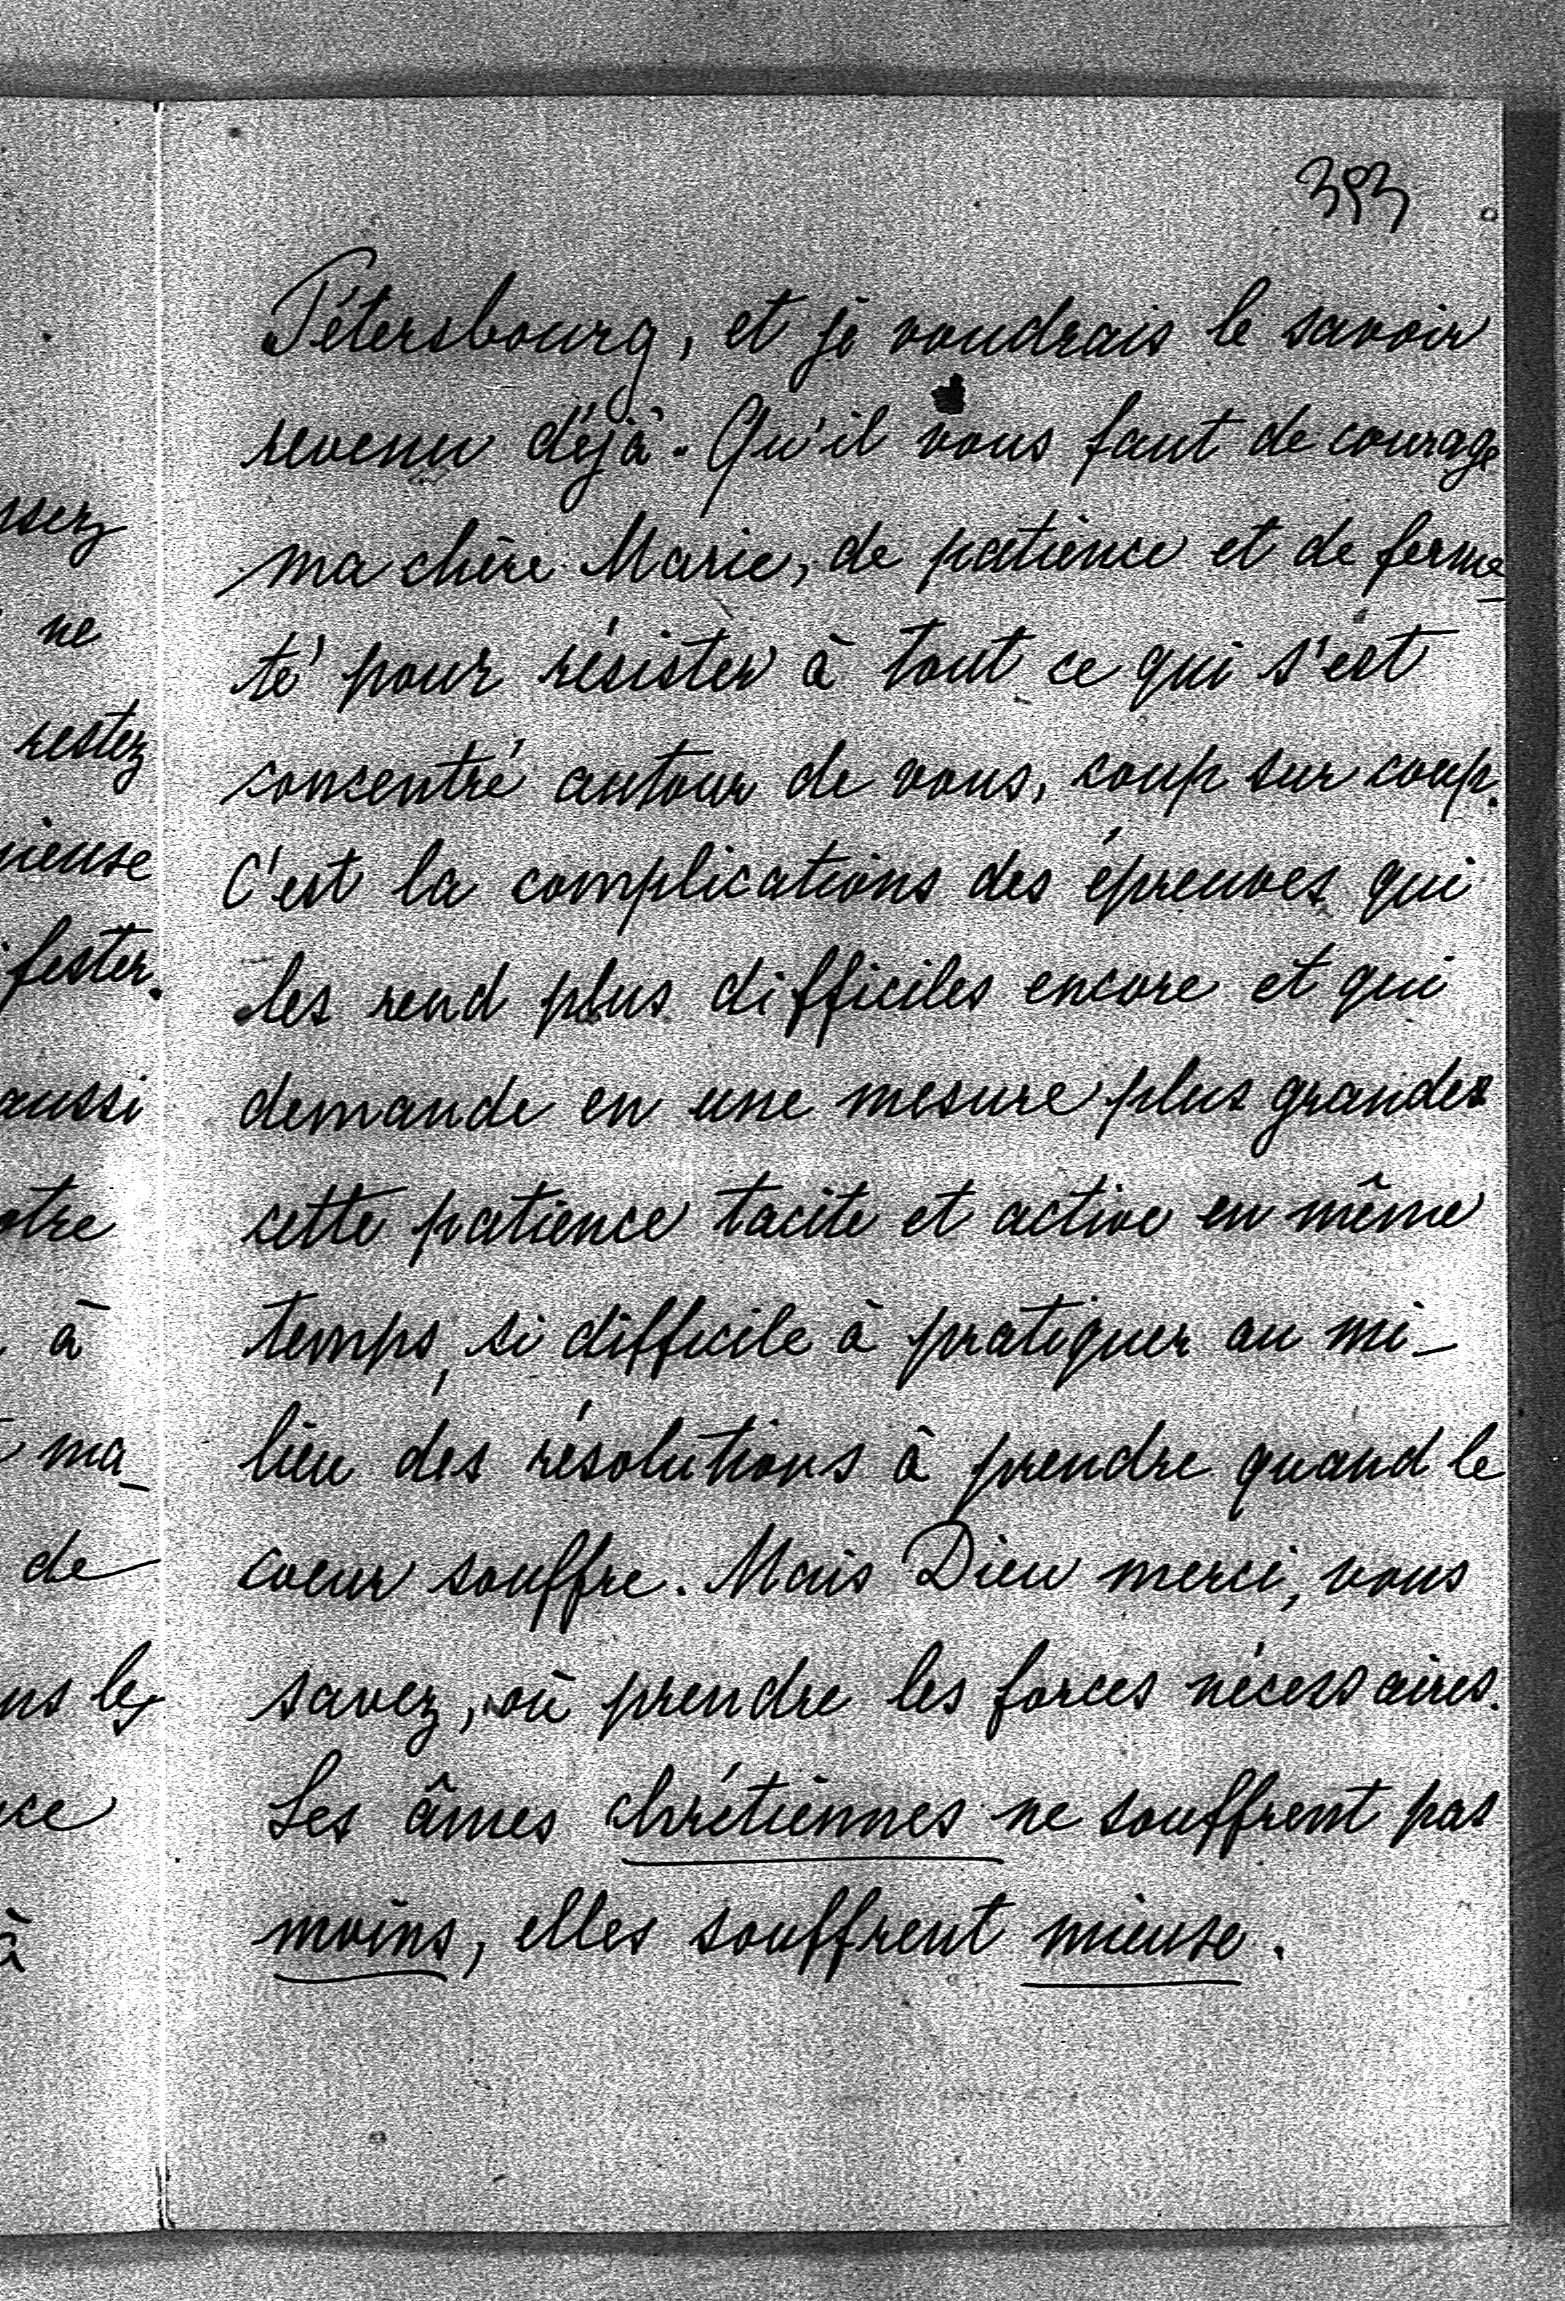 393
Pétersbourg, et je voudrais le savoir
revenu déjà. Qu'il vous faut de courage
ma chère Marie, de patience et de ferme-
té pour résister à tout ce qui s'est
concentré autour de vous, coup sur coup.
C'est la complications des épreuves qui
les rend plus difficiles encore et qui
demande en une mesure plus grandes
cette patience tacite et active en même
temps, si difficile à pratiquer au mi-
lieu des résolutions à prendre quand le
coeur souffre. Mais Dieu merci, vous
savez, où prendre les forces nécessaires.
Les âmes chrétiennes ne souffrent pas
moins, elles souffrent mieuse.
ne
restez
fester.
aussi
à
ma-
de